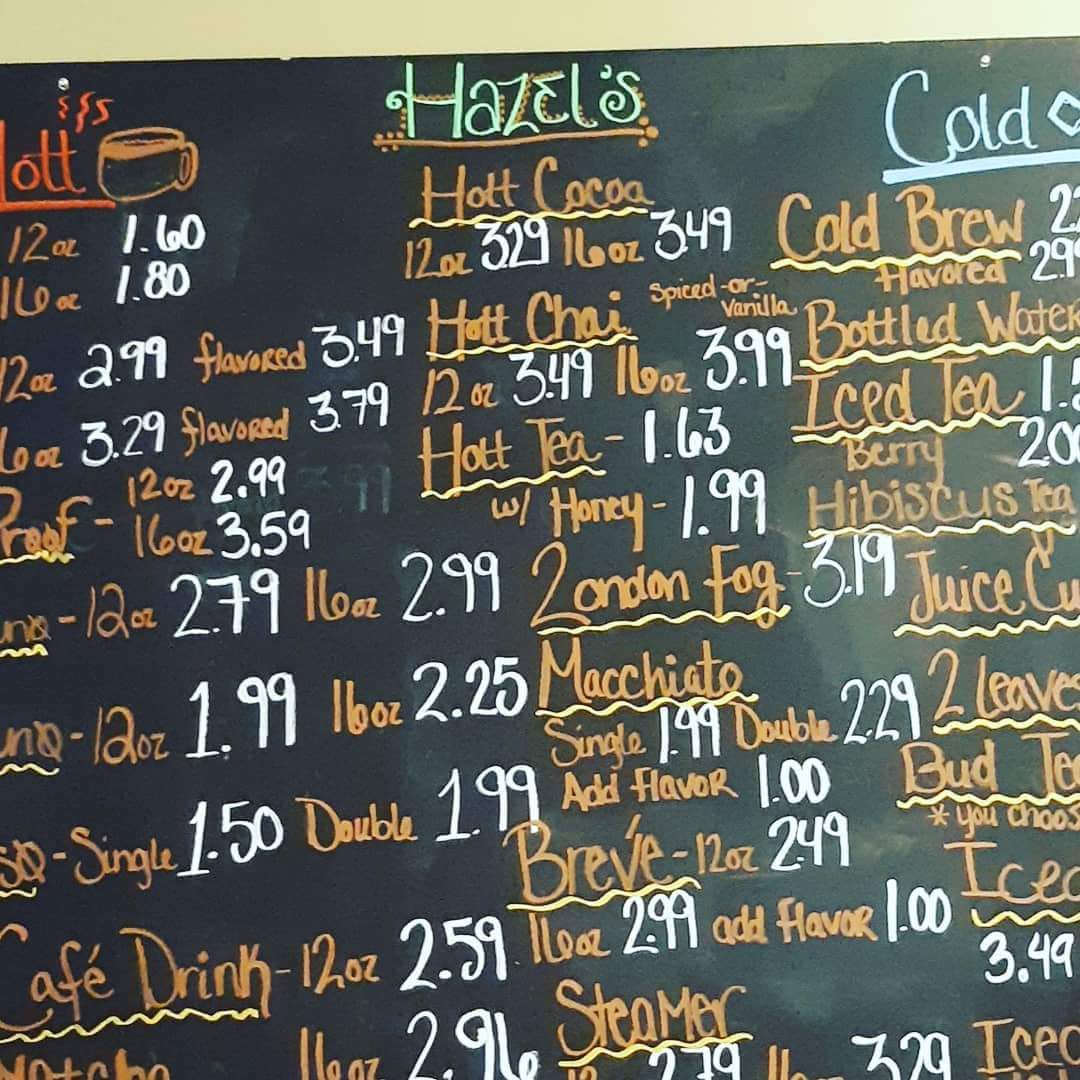 Hazel's
Hott
12oz 1.60
16oz 1.80
12oz 2.99 flavored 3.49
16oz 3.29 flavored 3.79
Proof - 12oz 2.99
16oz 3.59
- 12oz 2.79 16oz 2.99
- 12oz 1.99 16oz 2.25
- Single 1.50 Double 1.99
Café Drink - 12oz 2.59
16oz 2.96
Hott Cocoa
12oz 3.29 16oz 3.49
Hott Chai Spiced -or- Vanilla
12oz 3.49 16oz 3.99
Hott Tea - 1.63
w/ Honey - 1.99
London Fog - 3.19
Macchiato
Single 1.99 Double 2.29
Add Flavor 1.00
Brevé - 12oz 2.49
16oz 2.99 add flavor 1.00
Steamer
2.79 3.29
Cold
Cold Brew
Flavored 2.99
Bottled Water
Iced Tea
Berry 2.00
Hibiscus Tea
Juice
2 Leaves
Bud
*you
Iced
3.49
Iced